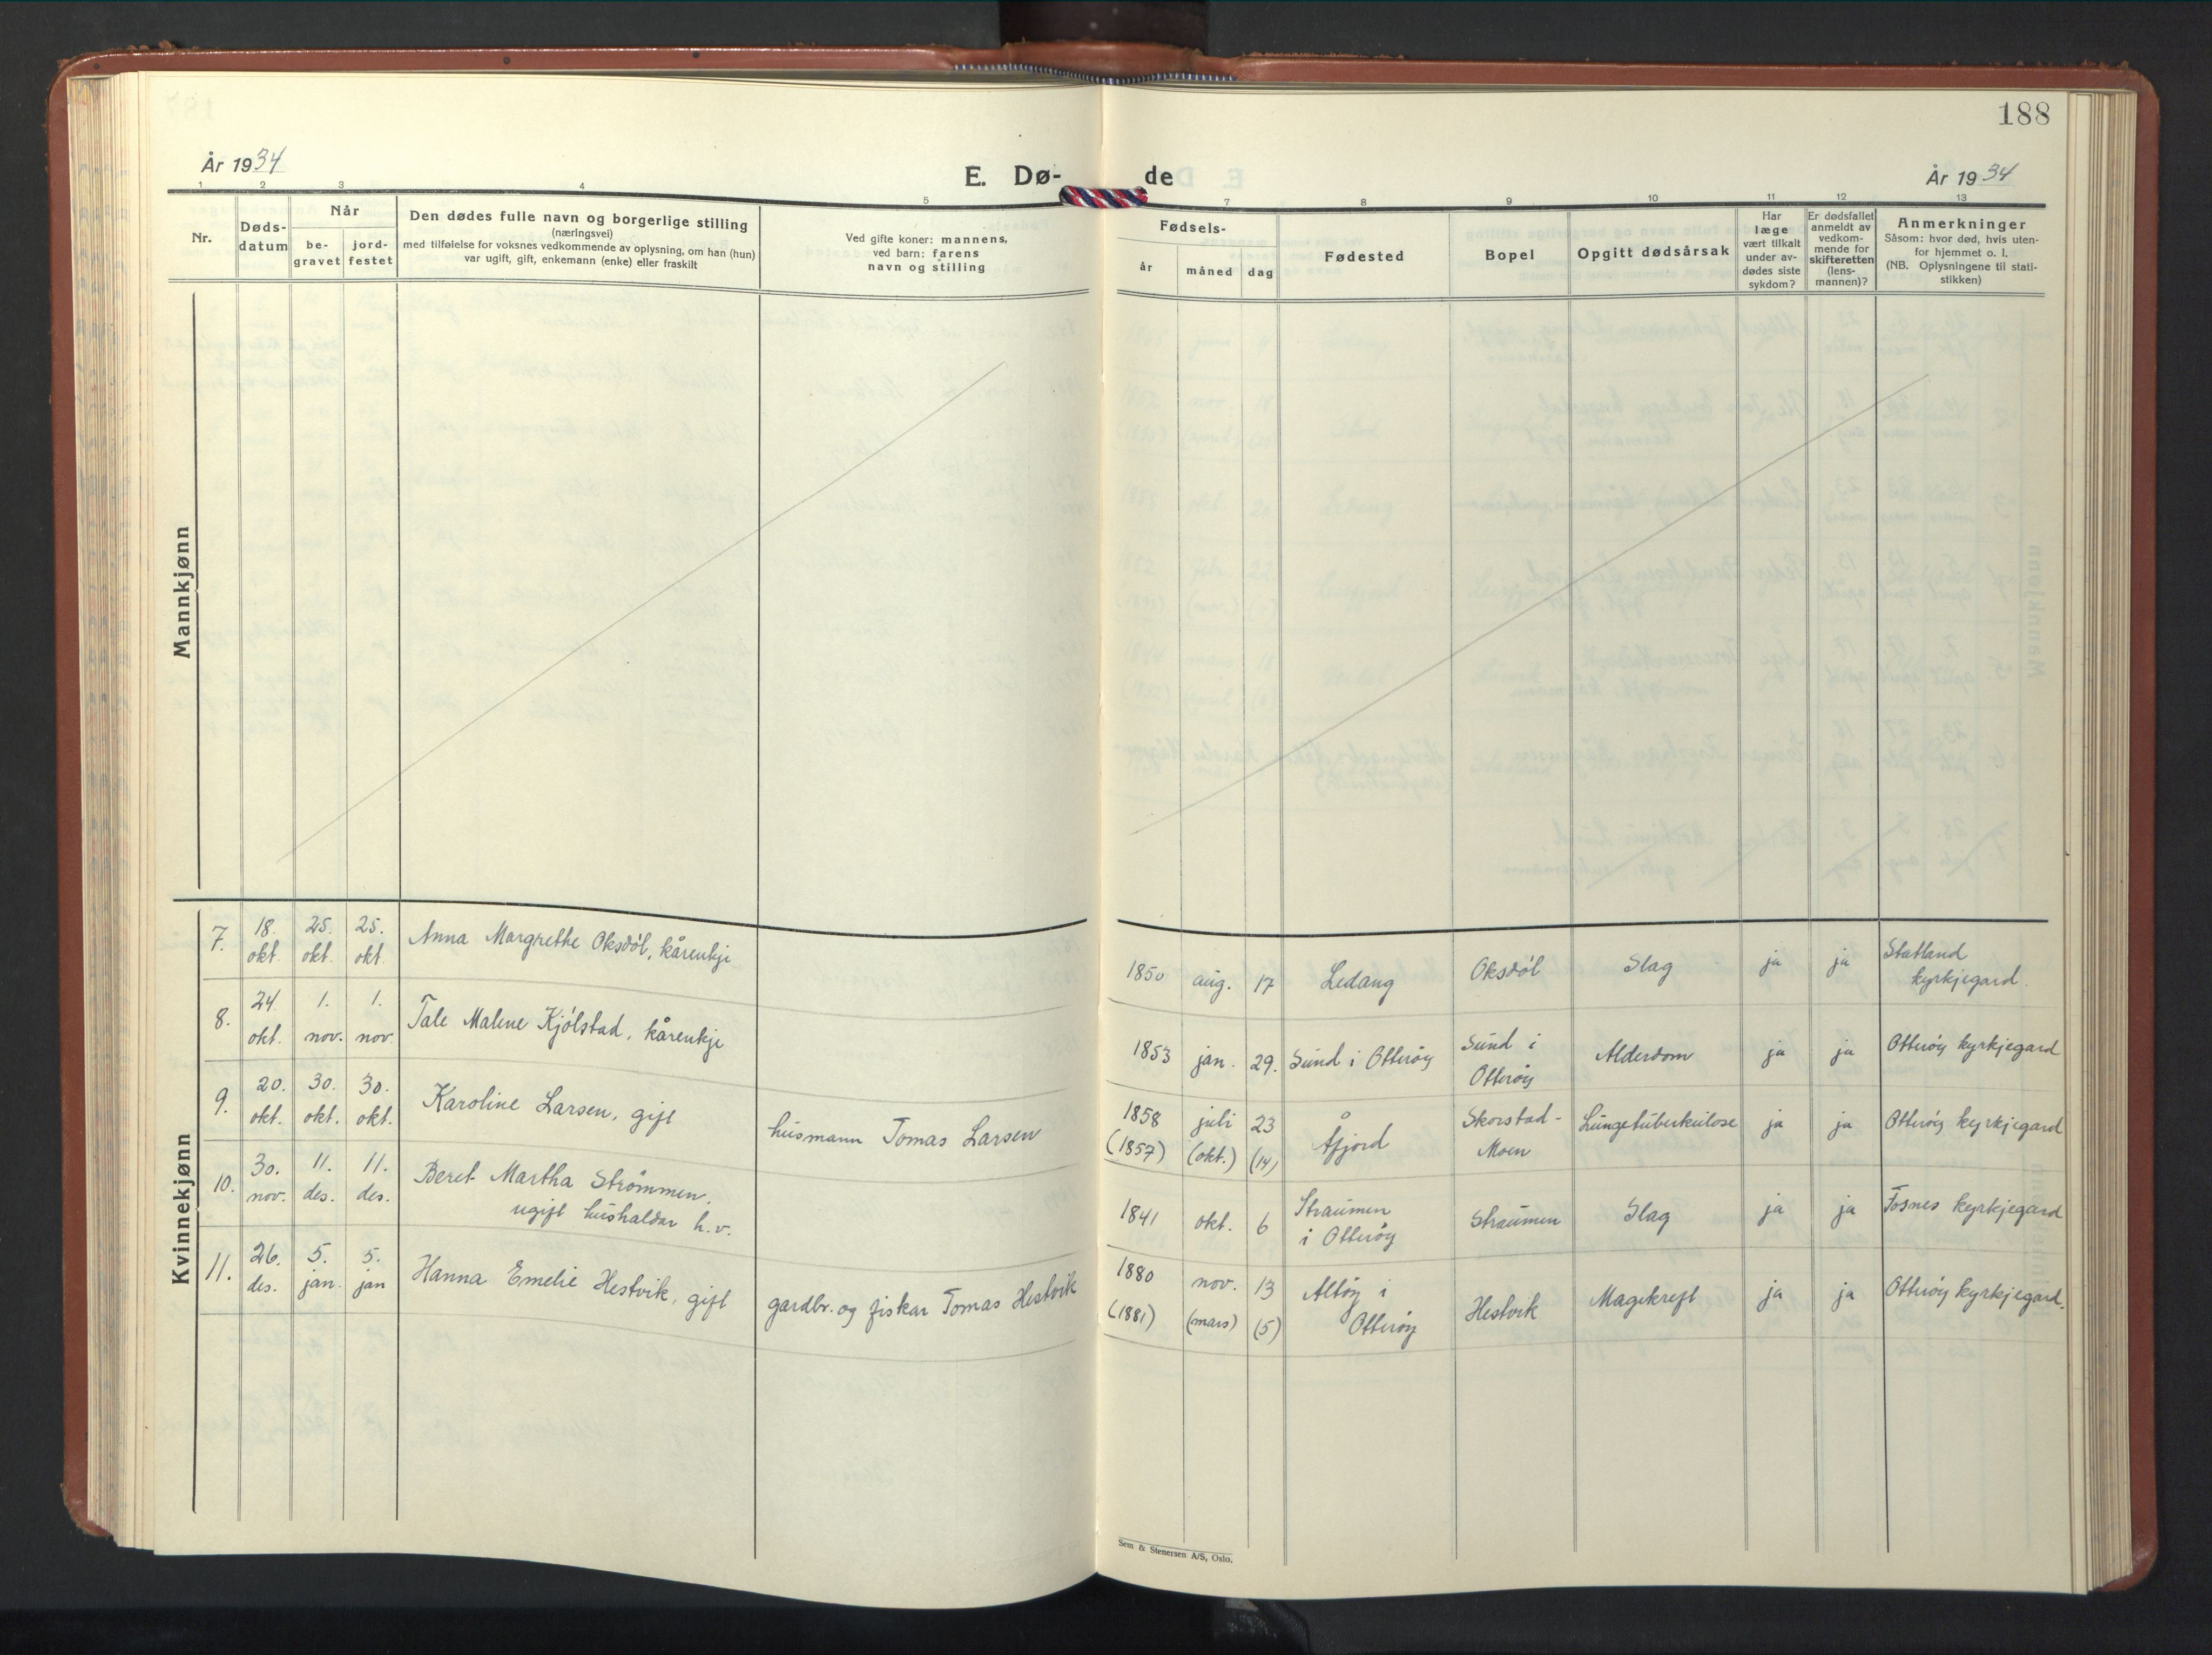 188
År 1934
E. Dø-
de
År 1934
1 2 3 4 5 7 8 9 10 11 12 13
Nr.
Døds-
datum
Når
be-
gravet
jord-
festet
Den dødes fulle navn og borgerlige stilling
(næringsvei)
med tilføielse for voksnes vedkommende av oplysning, om han (hun)
var ugift, gift, enkemann (enke) eller fraskilt
Ved gifte koner: mannens,
ved barn: farens
navn og stilling
Fødsels-
år
måned
dag
Fødested
Bopel
Opgitt dødsårsak
Har
læge
vært tilkalt
under av-
dødes siste
sykdom?
Er dødsfallet
anmeldt av
vedkom-
mende for
skifteretten
(lens-
mannen)?
Anmerkninger
Såsom: hvor død, hvis uten-
for hjemmet o. l.
(NB. Oplysningene til stati-
stikken)
Mannkjønn
Kvinnekjønn
7. 18. okt. 25. okt. 25. okt. Anna Margrethe Oksdøl, kårenkje
1850 aug. 17 Ledang Oksdøl Slag ja ja Statland
kyrkjegard.
8. 24. okt. 1. nov. 1. nov Tale Malene Kjølstad, kårenkje
1853 jan. 29. Sund i Otterøy Sund i
Otterøy Alderdom ja ja Otterøy kyrkjegard
9. 20. okt. 30. okt. 30. okt. Karoline Larsen, gift husmann Tomas Larsen
1858 juli 23 Åfjord Skorstad-
Moen Lungetuberkulose ja ja Otterøy kyrkjegard
(1857) (okt.) (14)
10. 30. nov. 11. des. 11. des. Beret Martha Strømmen.
ugift hushaldar h.v.
1841 okt. 6 Straumen
i Otterøy Straumen Slag ja ja Fosnes kyrkjegard
11. 26. des. 5. jan. 5. jan Hanna Emelie Hestvik, gift gardbr. og fiskar Tomas Hestvik
1880 nov. 13 Altøy i
Otterøy Hestvik Magekreft ja ja Otterøy kyrkjegard.
(1881) (mars) (5)
Sem & Stenersen A/S, Oslo.